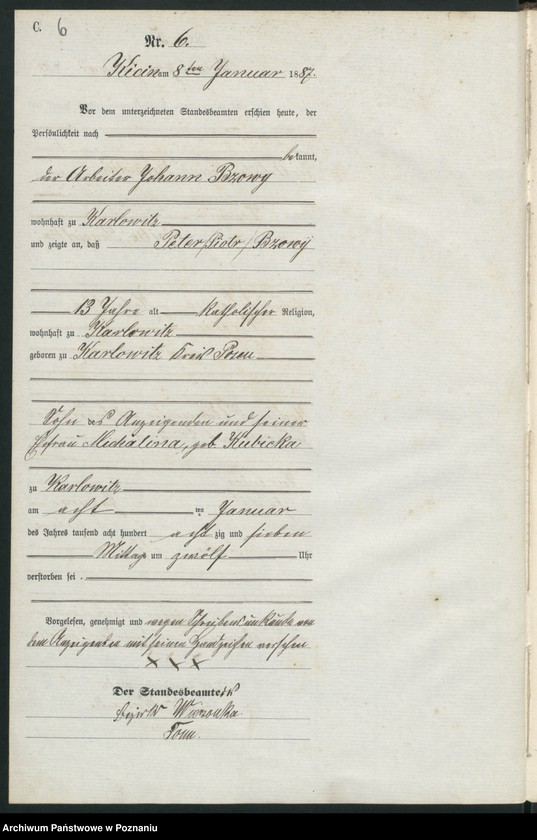 C. 6
Nr. 6.
Kicin am 8ten Januar 1887.
Vor dem unterzeichneten Standesbeamten erschien heute, der
Persönlichkeit nach
bekannt,
der Arbeiter Johann Bzowy
wohnhaft zu Karlowitz
und zeigte an, daß Peter /Piotr/ Bzowy
13 Jahre alt katholischer Religion,
wohnhaft zu Karlowitz
geboren zu Karlowitz Kreis Posen
Sohn des Anzeigenden und seiner
Ehefrau geb. Kubicka
zu Karlowitz
am acht ten Januar
des Jahres tausend acht hundert acht zig und sieben
Mittags um zwölf Uhr
verstorben sei.
Vorgelesen, genehmigt und wegen Schreibensunkunde von
dem Anzeigenden mit seinen Handzeichen versehen
+ + +
Der Standesbeamte
Archiwum Państwowe w Poznaniu